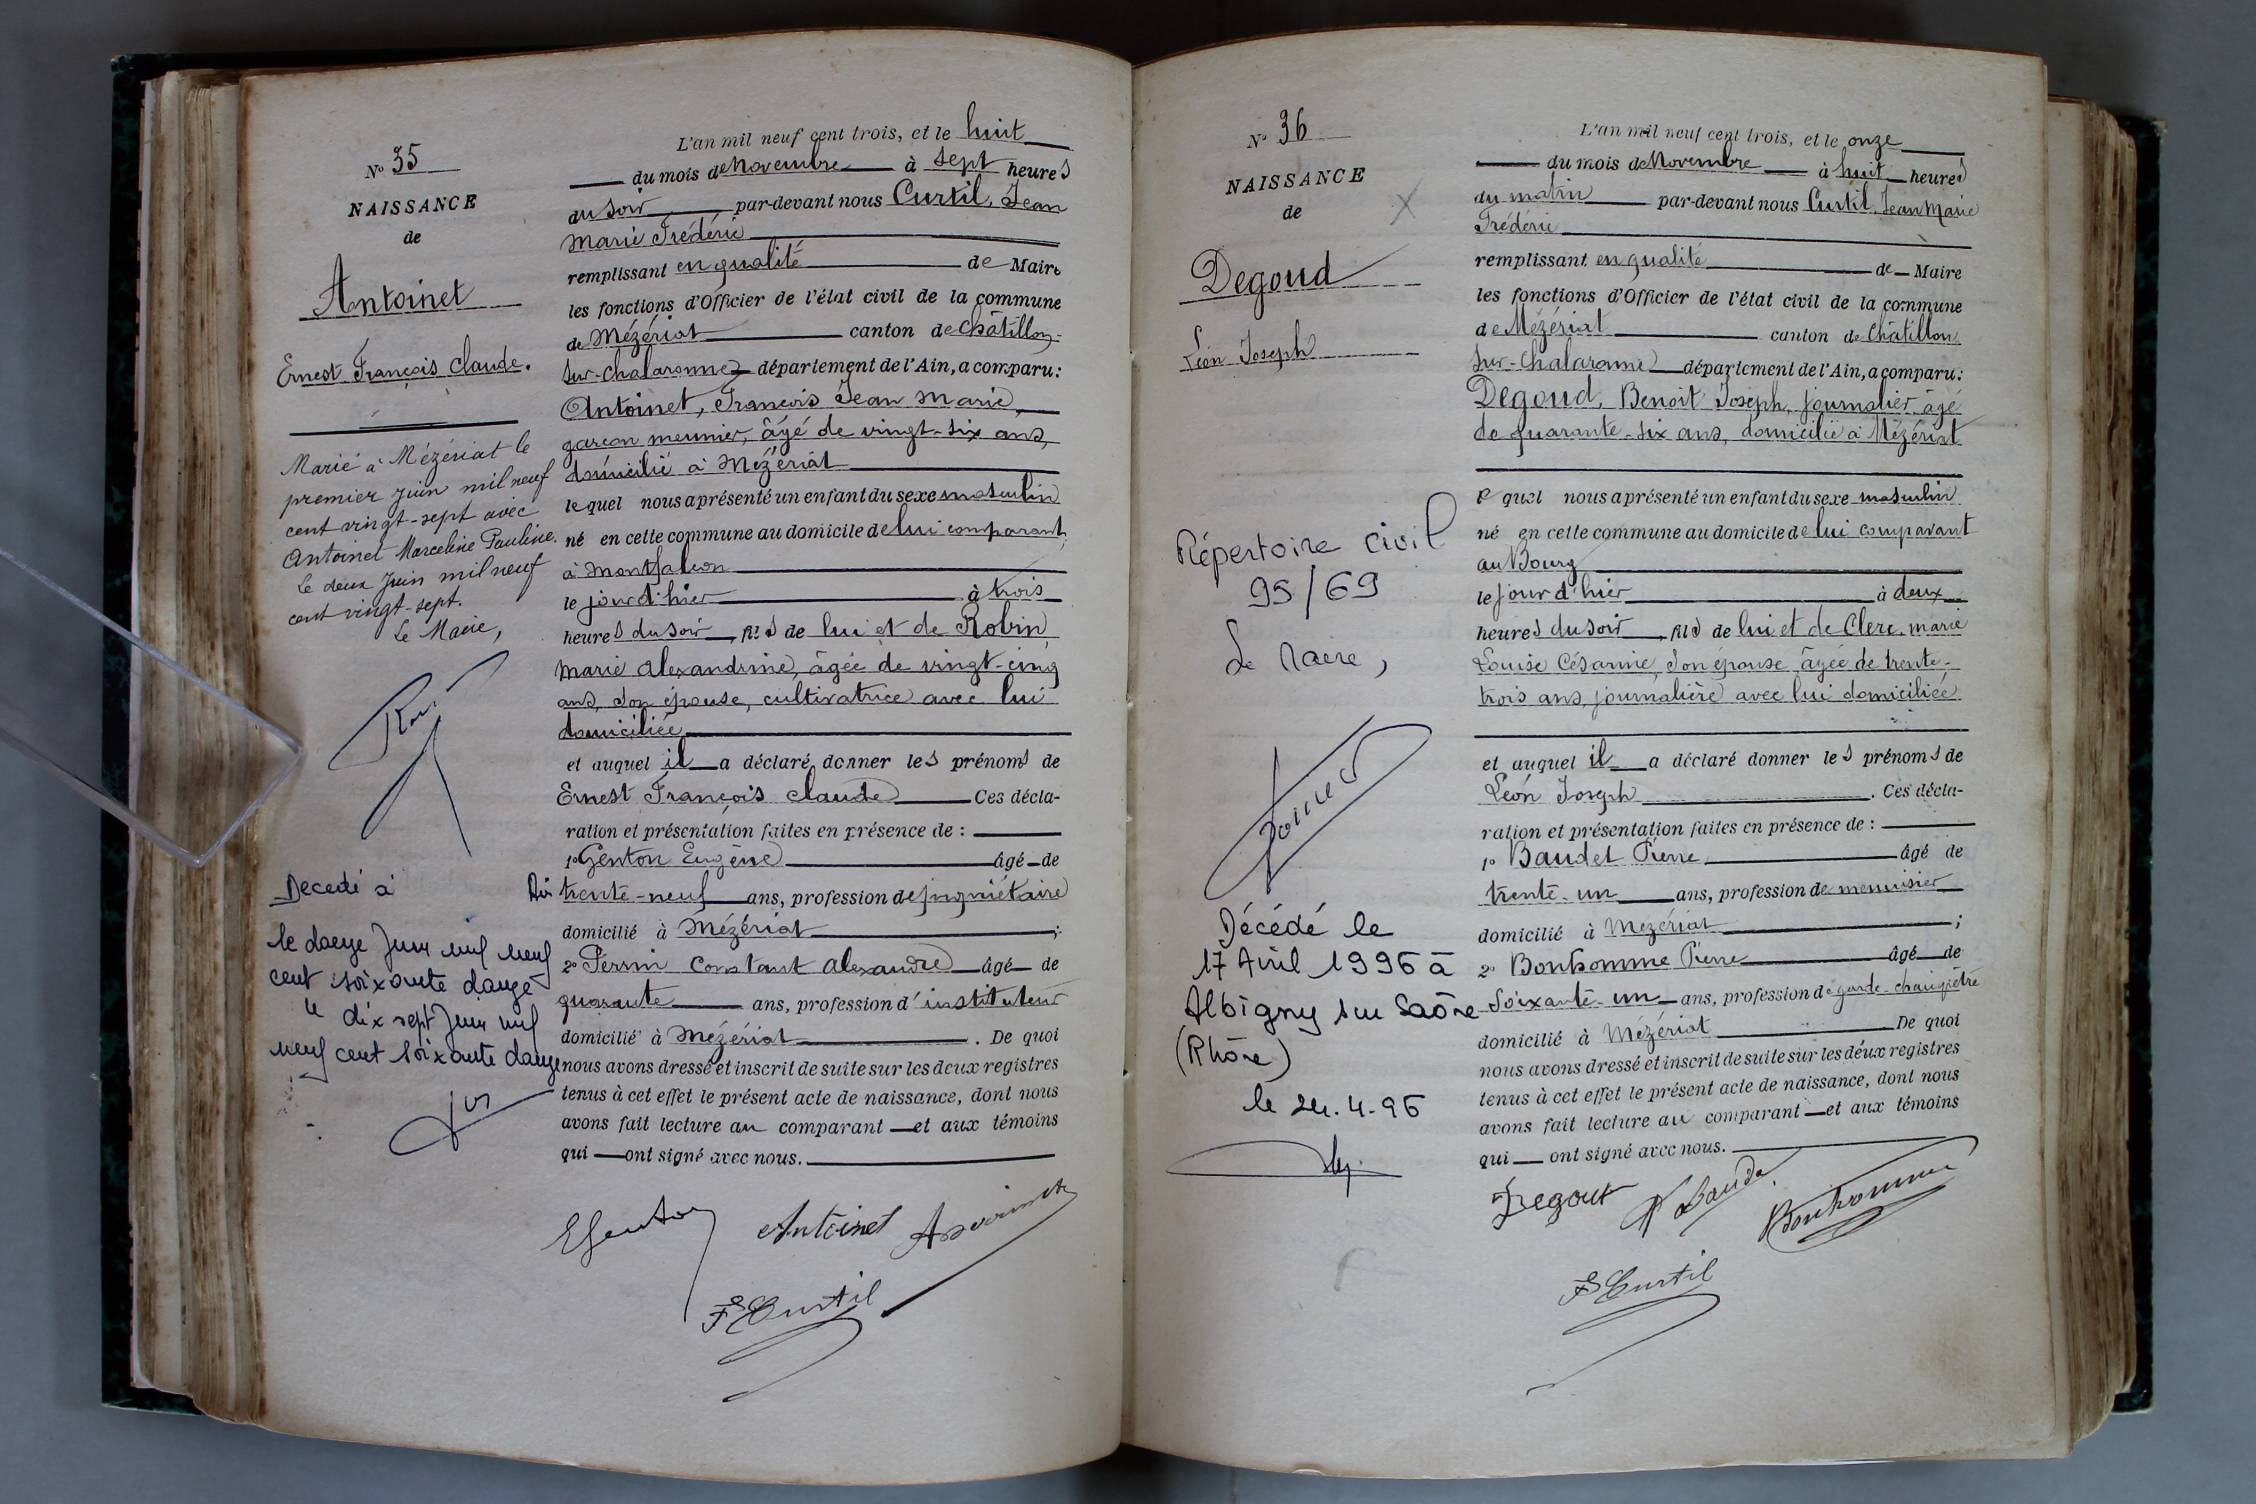 N° 35
NAISSANCE
de
Antoinet
Ernest François Claude.
Marié à Mézériat le
premier juin mil neuf
cent vingt-sept avec
Antoinet Marceline Pauline.
le deux juin mil neuf
cent vingt-sept.
Le Maire,
Decedé à
le douze Juin mil neuf
cent soixante douze
le dix sept Juin mil
neuf cent soixante douze
L'an mil neuf cent trois, et le huit
du mois de Novembre à sept heures
du soir par-devant nous Curtil, Jean
Marie Frédéric
remplissant en qualité de Maire
les fonctions d'Officier de l'état civil de la commune
de Mézériat canton de Châtillon-
sur-Chalaronne département de l'Ain, a comparu:
Antoinet, François Jean Marie,
garçon meunier, âgé de vingt-six ans,
domicilié à Mézériat
lequel nous a présenté un enfant du sexe masculin
né en cette commune au domicile de lui comparant,
à Montfalcon
le jour d'hier à trois
heures du soir, fils de lui et de Robin
Marie Alexandrine, âgée de vingt-cinq
ans, son épouse, cultivatrice avec lui
domiciliée
et auquel il a déclaré donner les prénoms de
Ernest François Claude Ces décla-
ration et présentation faites en présence de :
1° Genton Eugène âgé de
trente-neuf ans, profession de propriétaire
domicilié à Mézériat ;
2° Perrin Constant Alexandre âgé de
quarante ans, profession d'instituteur
domicilié à Mézériat . De quoi
nous avons dressé et inscrit de suite sur les deux registres
tenus à cet effet le présent acte de naissance, dont nous
avons fait lecture au comparant et aux témoins
qui ont signé avec nous.
EGenton Antoinet APerrin
F Curtil
N° 36
NAISSANCE
de
Degoud
Léon Joseph
Répertoire civil
95/69
Le Maire,
Décédé le
17 Avril 1996 à
Albigny sur Saône
(Rhône)
le 24.4.96
L'an mil neuf cent trois, et le onze
du mois de Novembre à huit heures
du matin par-devant nous Curtil, Jean Marie
Frédéric
remplissant en qualité de Maire
les fonctions d'Officier de l'état civil de la commune
de Mézériat canton de Châtillon
sur-Chalaronne département de l'Ain, a comparu:
Degoud, Benoit Joseph, journalier, âgé
de quarante-six ans, domicilié à Mézériat
lequel nous a présenté un enfant du sexe masculin
né en cette commune au domicile de lui comparant
au Bourg
le jour d'hier à deux
heures du soir, fils de lui et de Clerc, Marie
Louise Césarine, son épouse âgée de trente-
trois ans, journalière avec lui domiciliée
et auquel il a déclaré donner les prénoms de
Léon Joseph . Ces décla-
ration et présentation faites en présence de :
1° Baudet Pierre âgé de
trente-un ans, profession de menuisier
domicilié à Mézériat ;
2° Bonhomme Pierre âgé de
soixante-un ans, profession de garde-champêtre
domicilié à Mézériat De quoi
nous avons dressé et inscrit de suite sur les deux registres
tenus à cet effet le présent acte de naissance, dont nous
avons fait lecture au comparant et aux témoins
qui ont signé avec nous.
Degout P Baudet Bonhomme
F Curtil